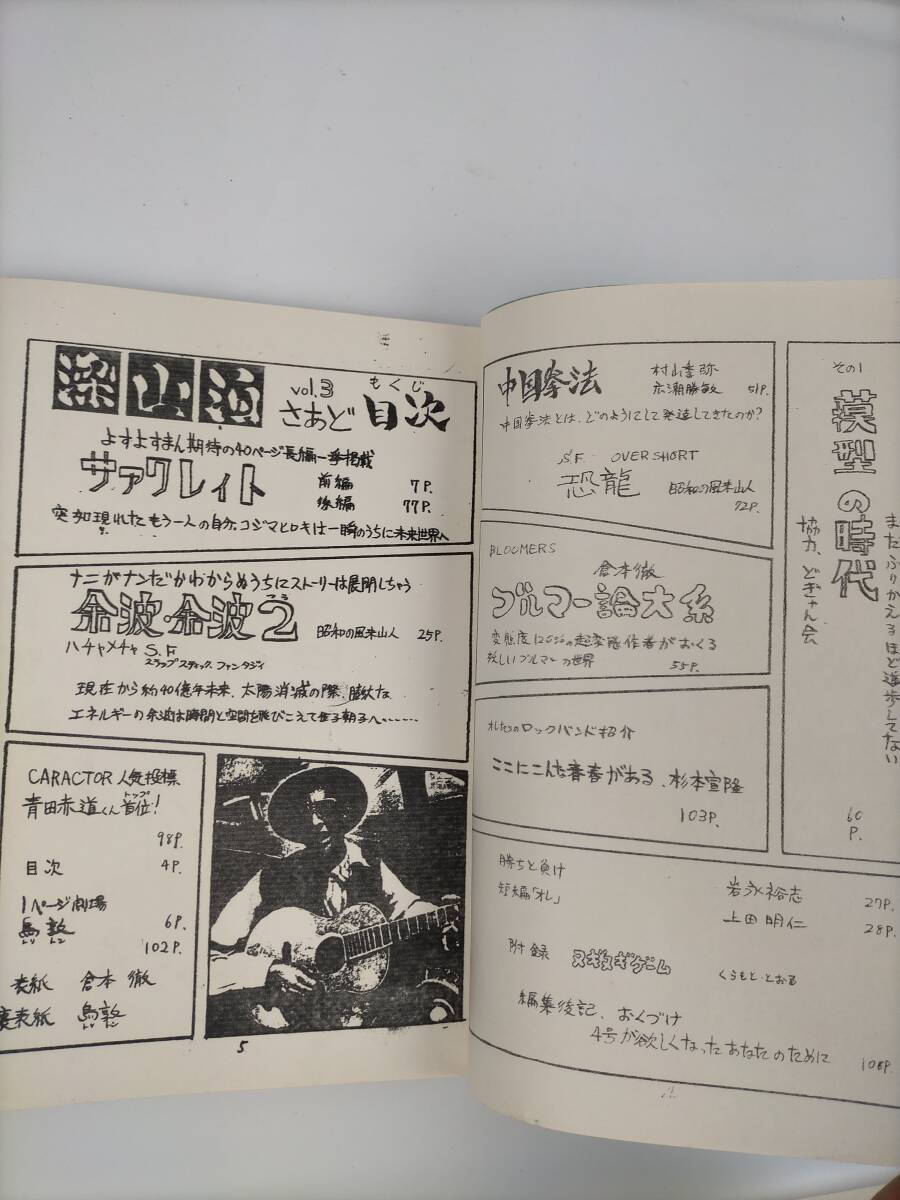 深山浜
vol.3
さあど
もくじ
目次
よすよすまん期待の40ページ長編一挙掲載
サァクレイト
前編 7P.
後編 77P.
突如現れたもう一人の自分、コジマヒロキは一瞬のうちに未来世界へ
ナニがナンだかわからぬうちにストーリーは展開しちゃう
余波・余波2
昭和の風来山人 25P.
ハチャメチャ S.F
スラップスティック ファンタジイ
現在から約40億年未来、太陽消滅の際、膨大な
エネルギーの余波は時間と空間を飛びこえて
CARACTOR 人気投票
青田赤道くん首位!
トップ
98P.
目次 4P.
1ページ劇場
鳥敦 6P.
トリ トン
102P.
表紙 倉本 徹
裏表紙 鳥敦
5
中国拳法
村山季弥
広瀬勝敏 51P.
中国拳法とは、どのようにして発達してきたのか?
S.F. OVER SHORT
恐龍
昭和の風来山人
72P.
BLOOMERS
倉本徹
ブルマー論大系
変態度120%の超変態作者がおくる
妖しいブルマーの世界 55P.
オレたちのロックバンド紹介
ここにこんな青春がある、杉本宣隆
103P.
その1
模型の時代
まだふりかえるほど進歩してない
協力、どぎゃん会
60
P.
勝ちと負け 岩永裕志 27P.
短編「オレ」 上田明仁 28P.
附録 ヌギヌギゲーム くらもと・とおる
編集後記、おくづけ
4号が欲しくなったあなたのために 108P.